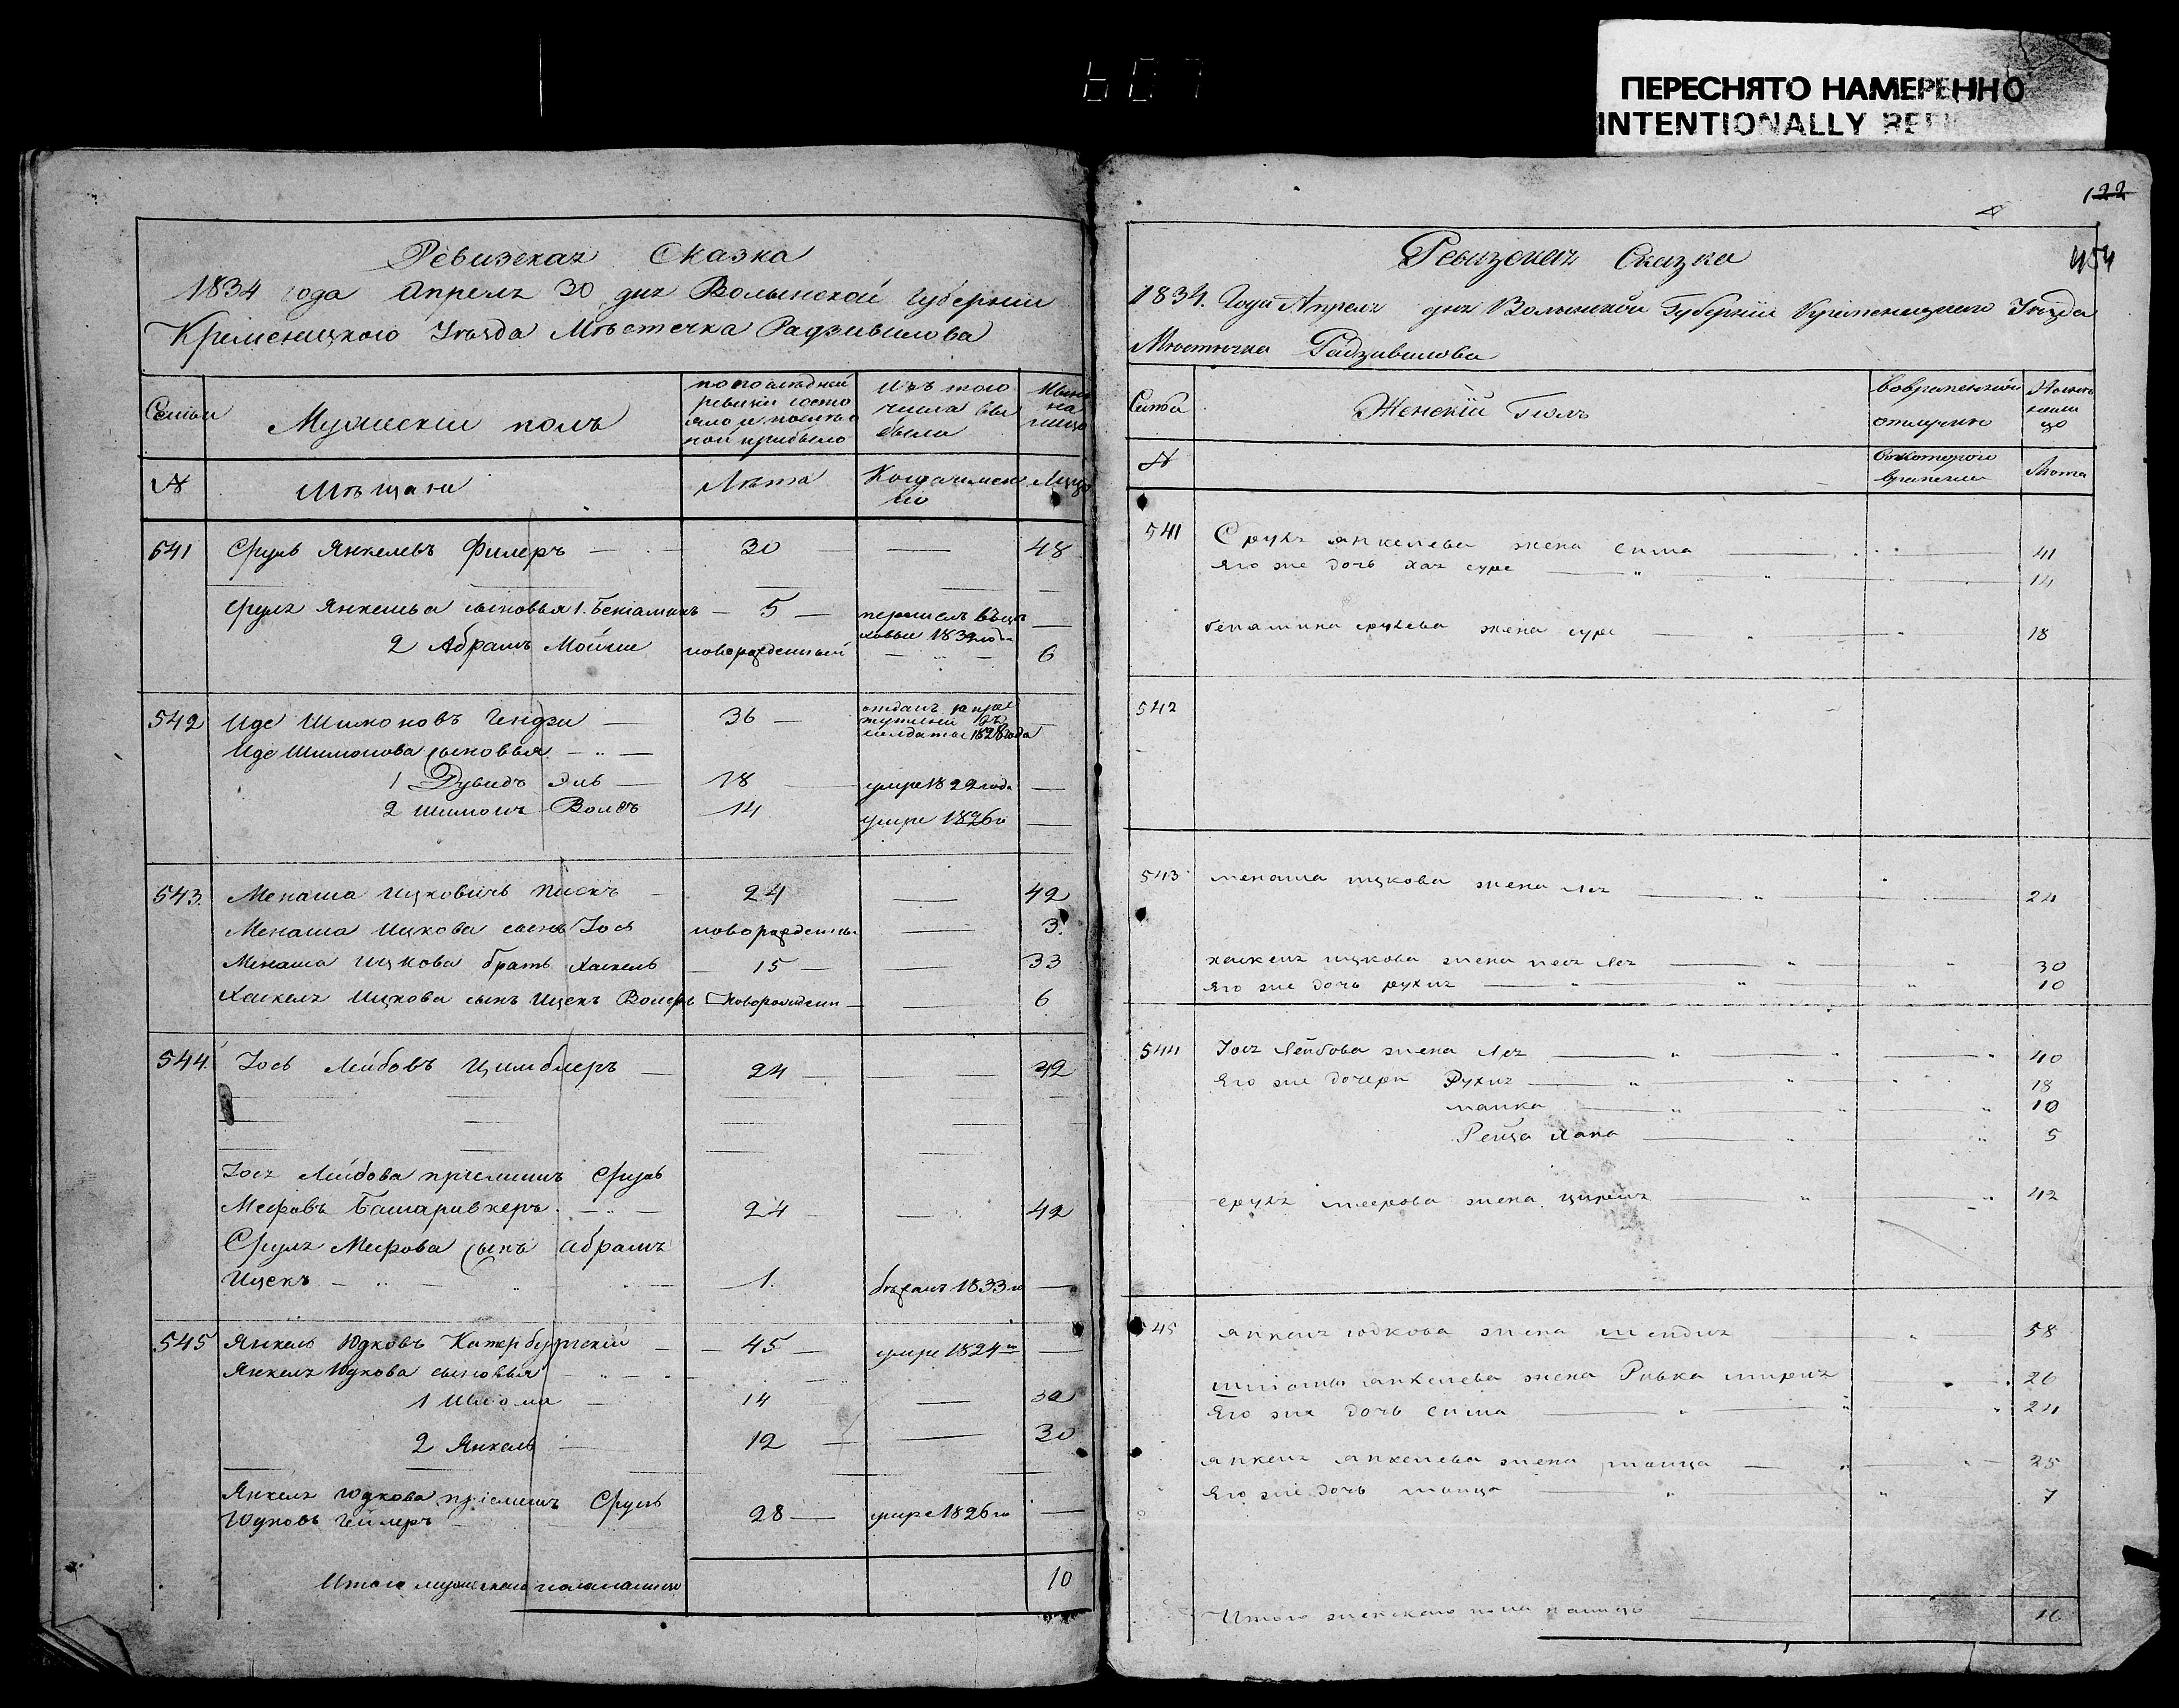 607
ПЕРЕСНЯТО НАМЕРЕННО
INTENTIONALLY
Ревизская Сказка
1834 года Апреля 30 дня Волынской Губернии
Кременецкого Уѣзда Мѣстечка Радзивилова
Семьи
Мужескiй полъ
по последней ревизiи состояло и после оной прибыло
Изъ того числа выбыло
Ныне на лицо
№
Мѣщане
Лѣта
Когда именно
Лѣта
541 Сруль Янкелевъ Филеръ 30 — 48
Сруля Янкельва сыновья 1. Бенiаминъ 5
1839 года
2 Абрамъ Мойше новорожденный — 6
542 Иде Шимоновъ 36
отданъ
солдаты 1828 года
Иде Шимонова сыновья
1 Дувидъ Эль 18 умре 1822 года —
2 Шимонъ Волфъ 14 умре 1826 го —
543. Менаша Ицковичъ Пискъ 24 — 42
Менаша Ицкова сынъ Iось новорожденны — 3.
Менаша Ицкова братъ Хаскель 15 — 33
Хаскеля Ицкова сынъ Ицекъ Новорожденн — 6
544. Iось Лейбовъ Цимблеръ 24 — 42
Iося Лейбова прiемишъ Сруль
Меровъ 24 — 42
Сруля Мерова сынъ Абрамъ
Ицекъ 1. 1833 го —
545 Янкель Юдковъ Катербургскiй 45 умре 1824 го —
Янкеля Юдкова сыновья
1 Шлома 14 — 32
2 Янкель 12 — 30
Янкеля Юдкова прiемишъ Сруль
Юдковъ 28 умре 1826 го —
Итого мужескаго пола налицо 10
122
454
Ревизская Сказка
1834. Года Апреля дня Волынской Губернiи Кременецкого Уѣзда
Мѣстечка Радзивилова
Семьи
Женскiй Полъ
Вовременной отлучке
Ныне на лицо
№
Скотораго времени
Лѣта
541 Сруля Янкелева жена Сима 41
Его же дочь Хая Суре 14
Бенямина Срулева жена Суре 18
542
543 Менаша Ицкова жена Лея 24
Хаскеля Ицкова жена Лея 30
Его же дочь Рухля 10
544 Iося Лейбова жена Лея 40
Его же дочери Рухля 18
Малка 10
Рейза Хана 5
Сруля Меерова жена Цирля 42
545 Янкеля Юдкова жена Шендля 58
Шломы Янкелева жена Ривка 26
Его же дочь Сима 24
Янкеля Янкелева жена 25
Его же дочь 7
Итого женскаго пола налицо 16